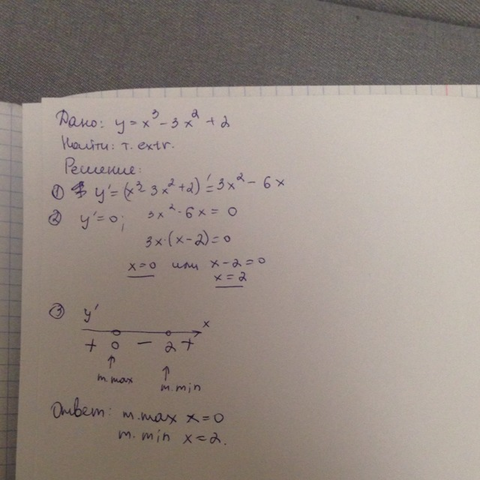 Дано: y = x³ - 3x² + 2
Найти: т. extr.
Решение:
① y' = (x³ - 3x² + 2)' = 3x² - 6x
② y' = 0; 3x² - 6x = 0
3x·(x-2) = 0
x = 0 или x - 2 = 0
x = 2
③ y'
x
+ 0 - 2 +
т. max
т. min
Ответ: т. max x = 0
т. min x = 2.